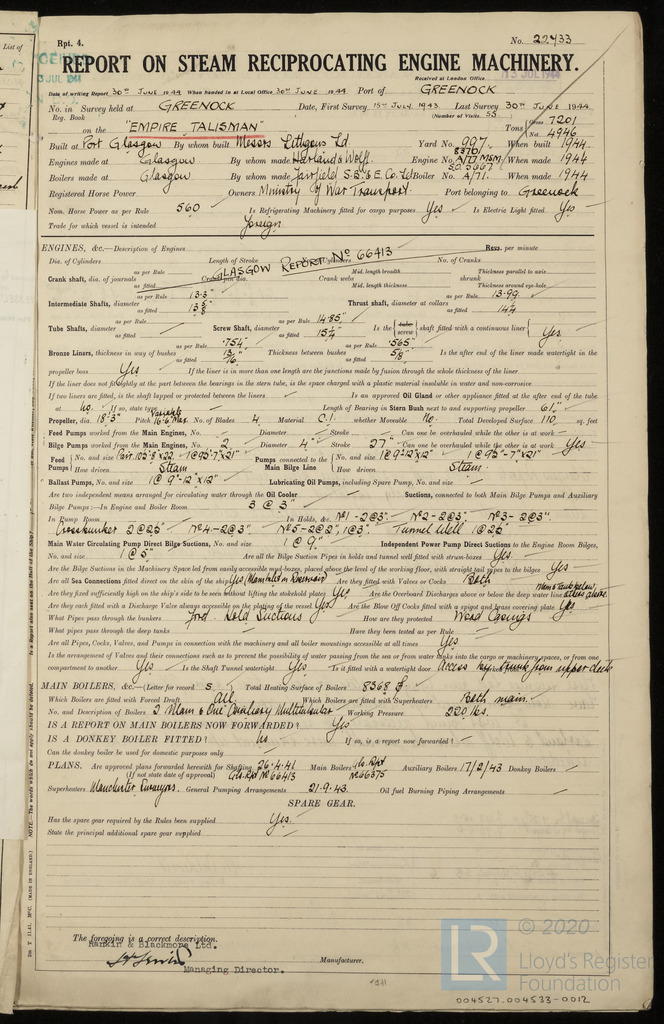 List of
Rpt. 4.
No. 22433
REPORT ON STEAM RECIPROCATING ENGINE MACHINERY.
Received at London Office
13 JUL 1944
Date of writing Report 30th June 1944 When handed in at Local Office 30th June 1944 Port of GREENOCK
No. in Survey held at GREENOCK Date, First Survey 15th July 1943 Last Survey 30th June 1944
Reg. Book (Number of Visits 55)
on the "EMPIRE TALISMAN" Tons Gross 7201
Net 4946
Built at Port Glasgow By whom built Messrs Lithgows Ld Yard No. 997 When built 1944
Engines made at Glasgow By whom made Harland & Wolff Engine No. When made 1944
Boilers made at Glasgow By whom made Fairfield S.B. & E. Co. Ld Boiler No. A/71. When made 1944
Registered Horse Power Owners Ministry of War Transport. Port belonging to Greenock
Nom. Horse Power as per Rule 560 Is Refrigerating Machinery fitted for cargo purposes Yes Is Electric Light fitted Yes
Trade for which vessel is intended Foreign
ENGINES, &c.—Description of Engines Revs. per minute
Dia. of Cylinders Length of Stroke No. of Cylinders No. of Cranks
GLASGOW REPORT No 66413
Crank shaft, dia. of journals as per Rule as fitted Crank pin dia. Crank webs Mid. length breadth Mid. length thickness shrunk Thickness parallel to axis Thickness around eye-hole
Intermediate Shafts, diameter as per Rule 13.3" as fitted 13 5/8" Thrust shaft, diameter at collars as per Rule 13.99 as fitted 14 1/4
Tube Shafts, diameter as per Rule as fitted Screw Shaft, diameter as per Rule 14.85" as fitted 15 1/4" Is the {tube screw} shaft fitted with a continuous liner {Yes.
Bronze Liners, thickness in way of bushes as per Rule .754" as fitted 13/16" Thickness between bushes as per Rule .565" as fitted 5/8" Is the after end of the liner made watertight in the
propeller boss Yes If the liner is in more than one length are the junctions made by fusion through the whole thickness of the liner
If the liner does not fit tightly at the part between the bearings in the stern tube, is the space charged with a plastic material insoluble in water and non-corrosive
If two liners are fitted, is the shaft lapped or protected between the liners Is an approved Oil Gland or other appliance fitted at the after end of the tube
at No. If so, state type Length of Bearing in Stern Bush next to and supporting propeller 61"
Propeller, dia. 18'-3" Pitch Variable 16'-6" Max. No. of Blades 4 Material C.I. whether Moveable No. Total Developed Surface 110 sq. feet
Feed Pumps worked from the Main Engines, No. Diameter Stroke Can one be overhauled while the other is at work
Bilge Pumps worked from the Main Engines, No. 2 Diameter 4" Stroke 27" Can one be overhauled while the other is at work Yes
Feed Pumps {No. and size Pair 10½"-8"x22, 1@9½"-7"x21" How driven Steam Pumps connected to the Main Bilge Line {No. and size 1@9"-12"x12" 1@9½"-7"x21" How driven Steam.
Ballast Pumps, No. and size 1@9"-12"x12" Lubricating Oil Pumps, including Spare Pump, No. and size
Are two independent means arranged for circulating water through the Oil Cooler Suctions, connected to both Main Bilge Pumps and Auxiliary
Bilge Pumps:—In Engine and Boiler Room 3 @ 3"
In Pump Room In Holds, &c. No1-2@3". No2-2@3". No3-2@3".
Crossbunker 2@2½" No4-2@3". No5-2@2", 1@3". Tunnel Well 1@2½"
Main Water Circulating Pump Direct Bilge Suctions, No. and size 1 @ 9" Independent Power Pump Direct Suctions to the Engine Room Bilges,
No. and size 1 @ 5" Are all the Bilge Suction Pipes in holds and tunnel well fitted with strum-boxes Yes.
Are the Bilge Suctions in the Machinery Space led from easily accessible mud-boxes, placed above the level of the working floor, with straight tail pipes to the bilges Yes
Are all Sea Connections fitted direct on the skin of the ship Yes Are they fitted with Valves or Cocks Both
Are they fixed sufficiently high on the ship's side to be seen without lifting the stokehold plates Yes Are the Overboard Discharges above or below the deep water line
Are they each fitted with a Discharge Valve always accessible on the plating of the vessel Yes Are the Blow Off Cocks fitted with a spigot and brass covering plate Yes
What Pipes pass through the bunkers Ford. Hold Suctions How are they protected Wood Casings
What pipes pass through the deep tanks Have they been tested as per Rule
Are all Pipes, Cocks, Valves, and Pumps in connection with the machinery and all boiler mountings accessible at all times Yes
Is the arrangement of Valves and their connections such as to prevent the possibility of water passing from the sea or from water tanks into the cargo or machinery spaces, or from one
compartment to another Yes Is the Shaft Tunnel watertight Yes Is it fitted with a watertight door Access by trunk from upper deck
MAIN BOILERS, &c.—(Letter for record S) Total Heating Surface of Boilers 8368
Which Boilers are fitted with Forced Draft All Which Boilers are fitted with Superheaters Both main.
No. and Description of Boilers 2 Main & One Auxiliary Multitubular Working Pressure 220 lbs.
IS A REPORT ON MAIN BOILERS NOW FORWARDED? Yes
IS A DONKEY BOILER FITTED? No. If so, is a report now forwarded?
Can the donkey boiler be used for domestic purposes only
PLANS. Are approved plans forwarded herewith for Shafting 26.4.41 Main Boilers Gls Rpt No 66375 Auxiliary Boilers 17/2/43 Donkey Boilers
(If not state date of approval) Gls Rpt No 66413
Superheaters Manchester Surveyors. General Pumping Arrangements 21.9.43. Oil fuel Burning Piping Arrangements
SPARE GEAR.
Has the spare gear required by the Rules been supplied Yes.
State the principal additional spare gear supplied
The foregoing is a correct description.
Rankin & Blackmore Ltd.
Manufacturer.
Managing Director.
© 2020
LR
Lloyd's Register
Foundation
004527-004533-0012